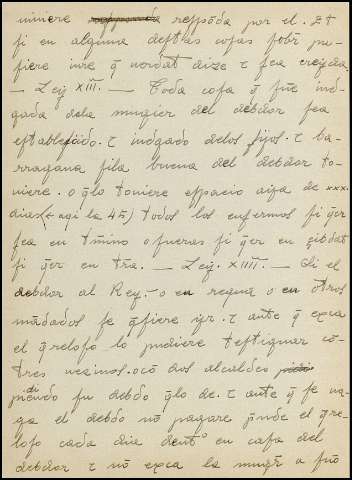 uiniere responda por el. Et
si en alguna destas cosas sobre
siere iure q̃ uerdat dize τ sea creyda
— Ley XIII. — Toda cosa q̃ fue iud-
gada dela mugier del debdor sea
τ iudgado delos fijos. τ ba-
rragana fila buena del debdor to-
uiere. o q̃lo touiere espacio aya de xxx.
dias (+ aqi la 45) todos los enfermos si q̃er
sea en tmino o fueras si q̃er en çibdat
si q̃er en trã. — Ley. XIIII. — Si el
debdor al Rey.— o en regina o en otros
mãdados se q̃siere yr. τ ante q̃ exca
el q̃relofo lo pudiere testiguar cõ-
tres uezinos. o cõ dos alcaldes
pidiendo su debdo q̃lo de. τ ante q̃ se ua-
ya el debdo nõ pagare el q̃re-
lofo cada dia dentº en casa del
debdor τ nõ exca la mugr̃ a